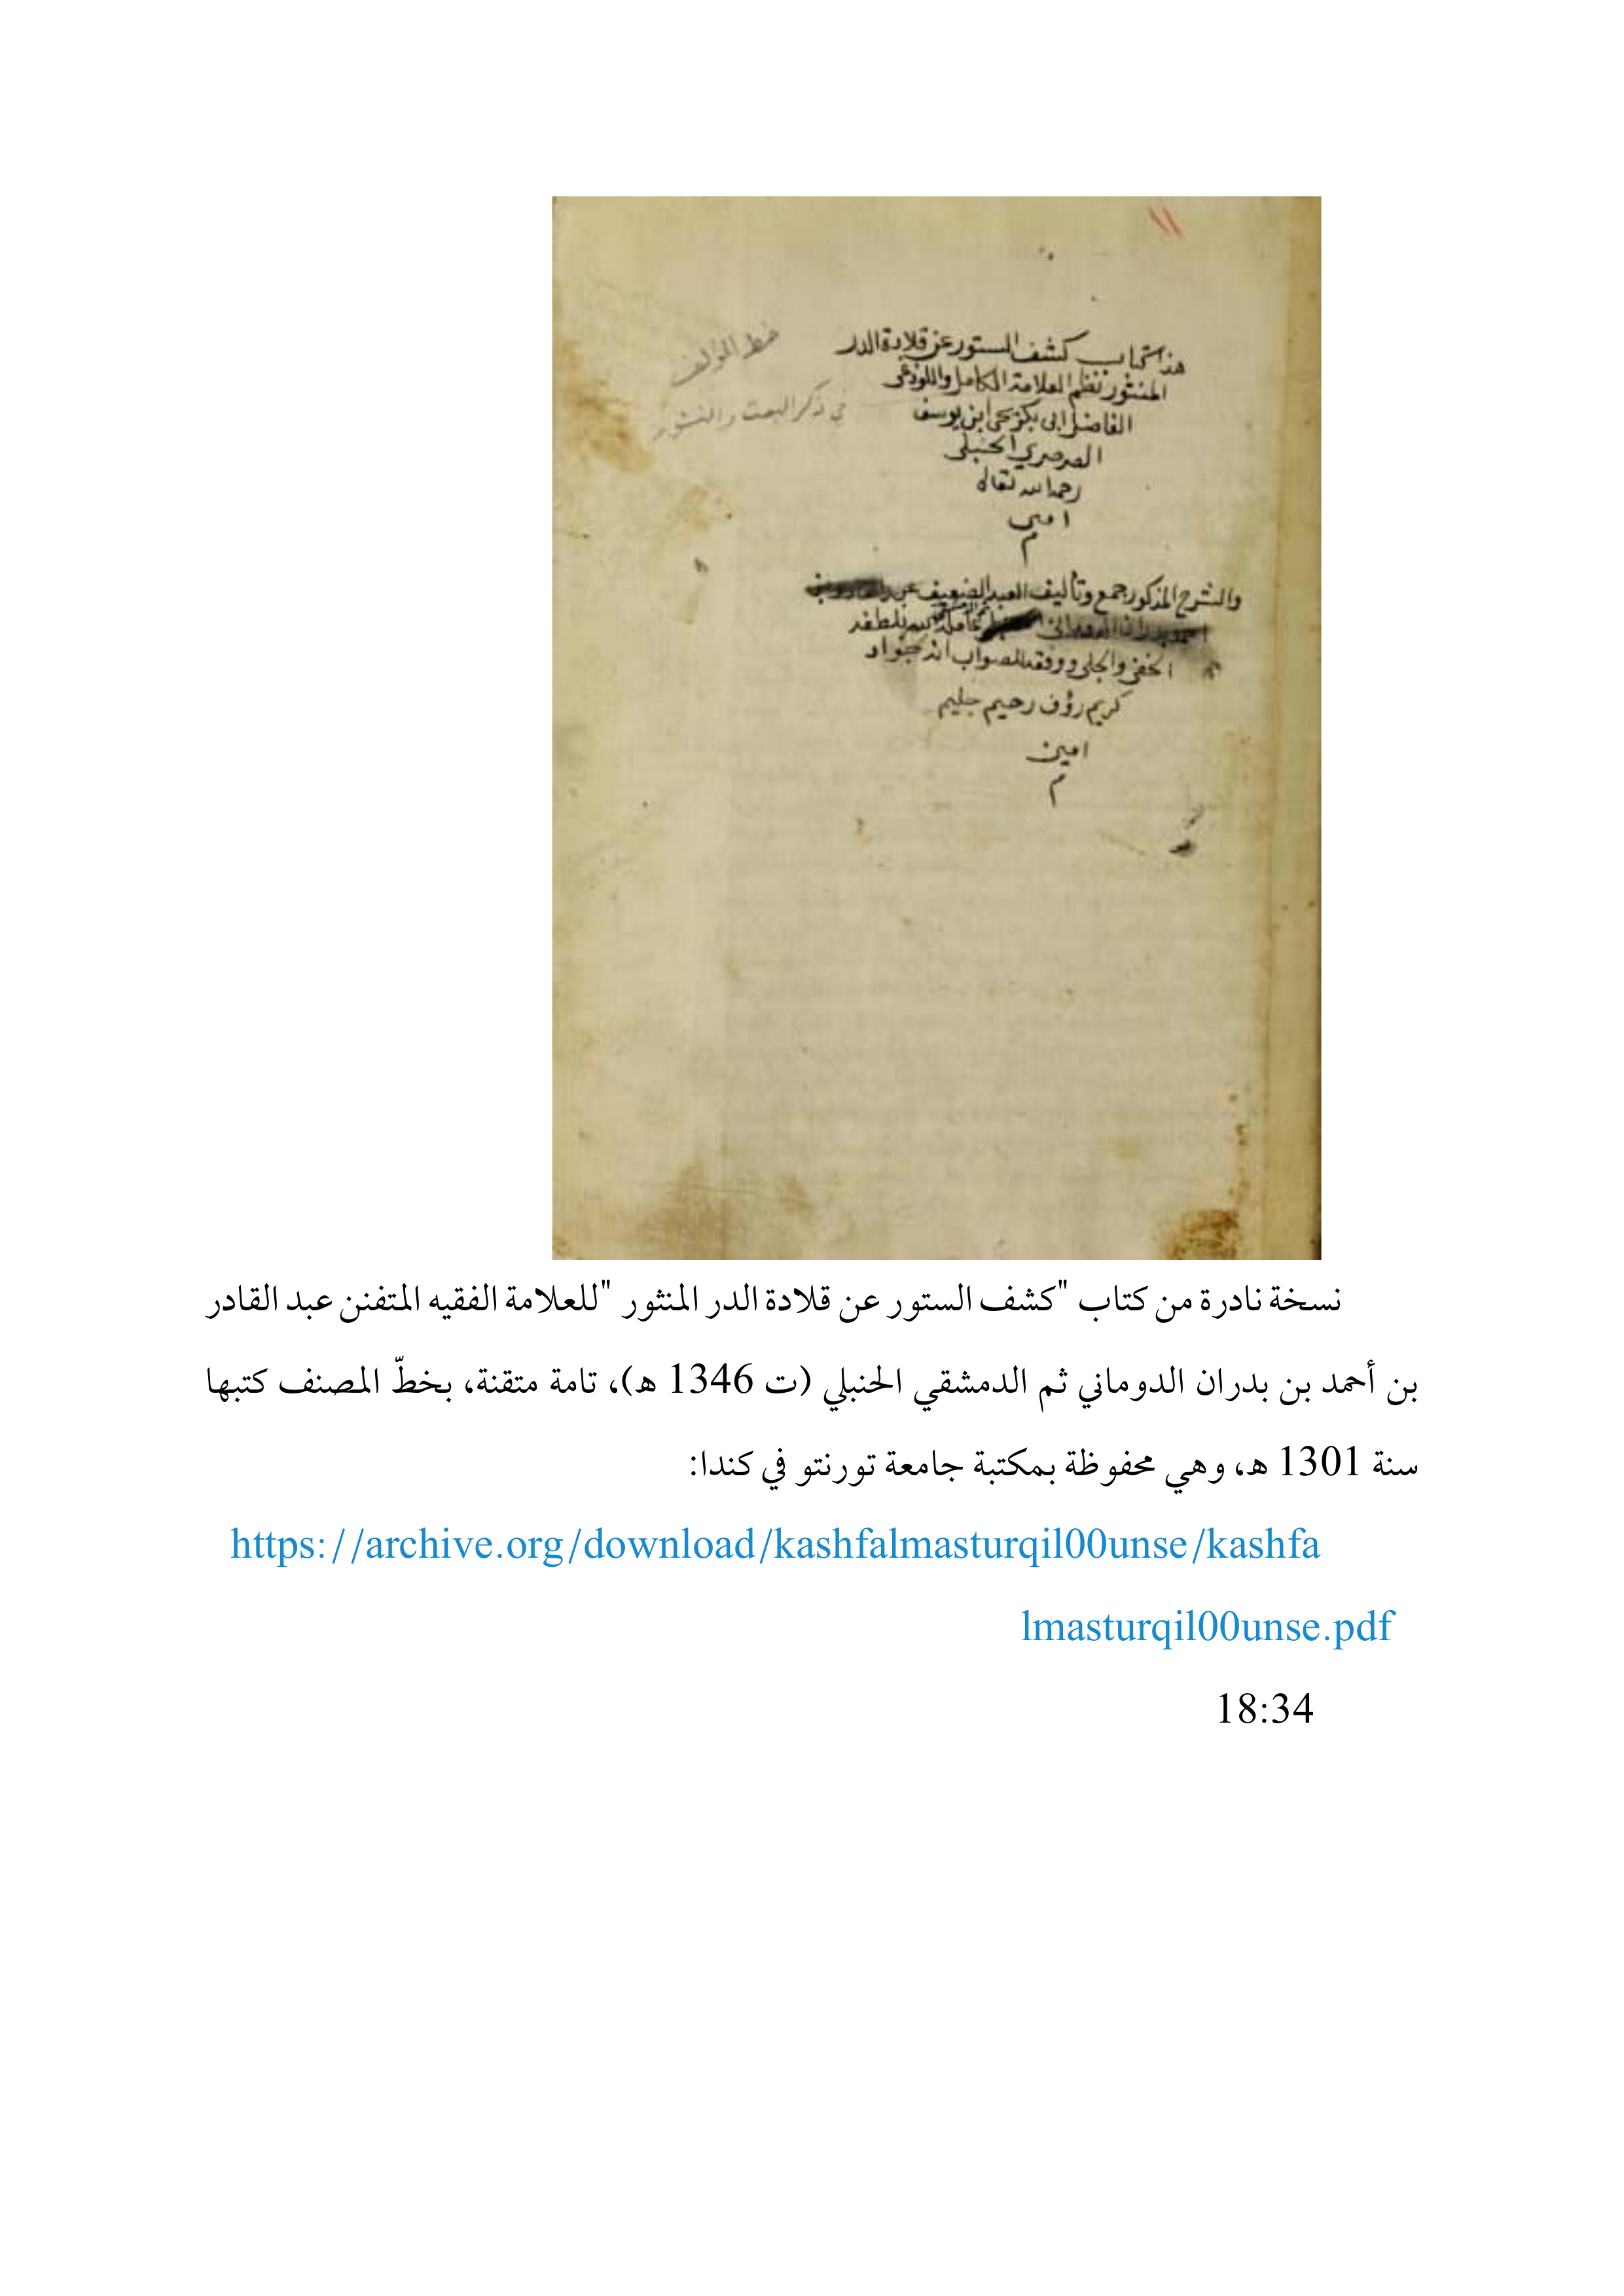 ١١
هذا كتاب كشف الستور عن قلادة الدر
المنثور نظم العلامة الكامل واللوذعي
الفاضل ابي بكر يحيى ابن يوسف
الصرصري الحنبلي
رحمه الله تعالى
امين
م
خط المؤلف
في ذكر البعث والنشور
والشرح المذكور جمع وتأليف العبد الضعيف
احمد بدران الدوماني عامله الله بلطفه
الخفي والجلي ووفقه للصواب انه جواد
كريم رؤف رحيم حليم
امين
م
نسخة نادرة من كتاب "كشف الستور عن قلادة الدر المنثور "للعلامة الفقيه المتفنن عبد القادر
بن أحمد بن بدران الدوماني ثم الدمشقي الحنبلي (ت 1346 ه)، تامة متقنة، بخطّ المصنف كتبها
سنة 1301 ه، وهي محفوظة بمكتبة جامعة تورنتو في كندا:
https://archive.org/download/kashfalmasturqil00unse/kashfa
lmasturqil00unse.pdf
18:34